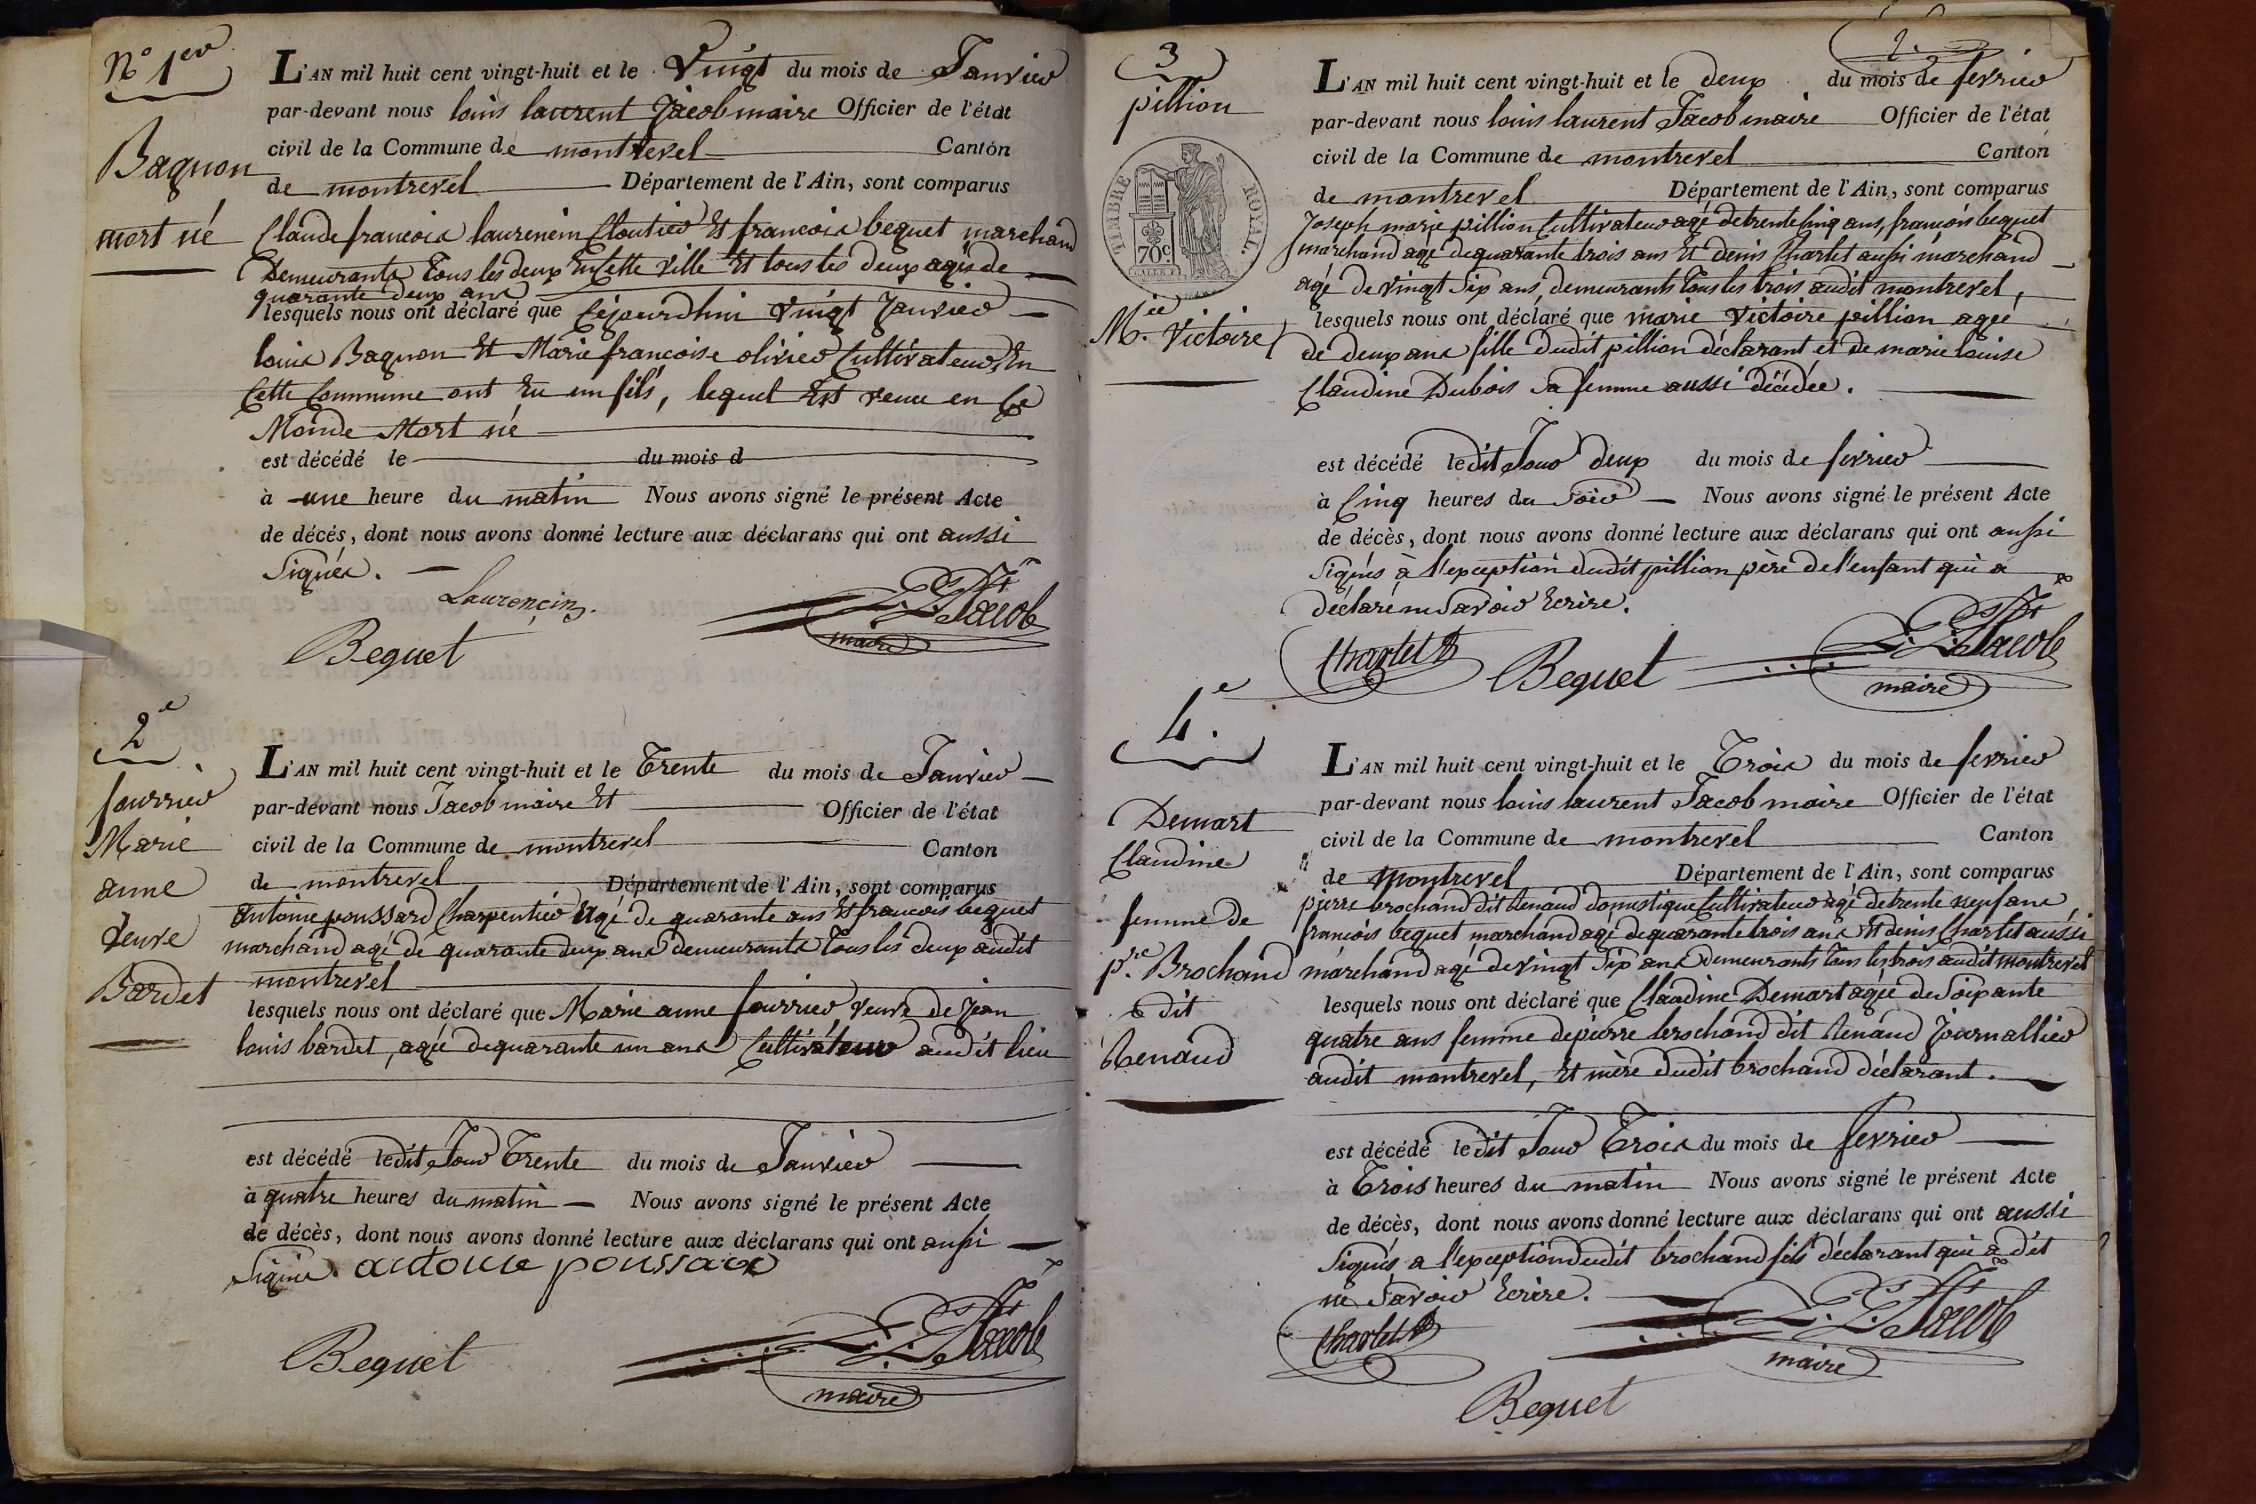 N° 1er
Bagnon
mort né
L'AN mil huit cent vingt-huit et le Vingt du mois de Janvier
par-devant nous louis laurent Jacob maire Officier de l'état
civil de la Commune de montrevel Canton
de montrevel Département de l'Ain, sont comparus
Claude francois laurencin Cloutier Et francois bequet marchand
Demeurants Tous les deux En Cette ville Et tous les deux agés de
quarante deux ans
lesquels nous ont déclaré que Cejourdhui vingt Janvier
louis Bagnon Et Marie francoise olivier Cultivateurs En
Cette Commune ont Eu un fils, lequel Est venu en Ce
Monde Mort né
est décédé le du mois d
à une heure du matin Nous avons signé le présent Acte
de décés, dont nous avons donné lecture aux déclarans qui ont aussi
Signés.
Laurençin
Bequet
L. L. Jacob
maire
2e
fourrier
Marie
anne
Veuve
Bardet
L'AN mil huit cent vingt-huit et le Trente du mois de Janvier
par-devant nous Jacob maire Et Officier de l'état
civil de la Commune de montrevel Canton
de montrevel Département de l'Ain, sont comparus
Antoine poussard Charpentier Agé de quarante ans Et francois bequet
marchand agé de quarante deux ans demeurants Tous les deux audit
montrevel
lesquels nous ont déclaré que Marie anne fourrier veuve de jean
louis bardet, agée de quarante un ans Cultivateur audit lieu
est décédé ledit Jour Trente du mois de Janvier
à quatre heures du matin Nous avons signé le présent Acte
de décès, dont nous avons donné lecture aux déclarans qui ont aussi
Signé. antoine poussar
Bequet
L. L. Jacob
maire
2.
3
pillion
TIMBRE ROYAL.
70c
Mie. Victoire
L'AN mil huit cent vingt-huit et le deux du mois de fevrier
par-devant nous louis laurent Jacob maire Officier de l'état
civil de la Commune de montrevel Canton
de montrevel Département de l'Ain, sont comparus
Joseph marie pillion Cultivateur agé de trente Cinq ans, francois bequet
marchand agé de quarante trois ans Et denis Charlet aussi marchand
agé de vingt Six ans, demeurants Tous les trois audit montrevel,
lesquels nous ont déclaré que marie Victoire pillion agée
de deux ans fille dudit pillion déclarant et de marie louise
Claudine Dubois Sa femme aussi décédée.
est décédé ledit Jour deux du mois de fevrier
à Cinq heures du Soir Nous avons signé le présent Acte
de décès, dont nous avons donné lecture aux déclarans qui ont aussi
Signés à l'exception dudit pillion père de l'enfant qui a
déclaré ne Savoir Ecrire.
Charlet
Bequet
L. L. Jacob
maire
4e.
Demart
Claudine
femme de
pre. Brochand
dit
Renaud
L'AN mil huit cent vingt-huit et le Trois du mois de fevrier
par-devant nous louis laurent Jacob maire Officier de l'état
civil de la Commune de montrevel Canton
de montrevel Département de l'Ain, sont comparus
pierre brochand dit Renaud domestique Cultivateur agé de trente neuf ans
francois bequet marchand agé de quarante trois ans Et denis Charlet aussi
marchand agé de vingt Six ans demeurants Tous les trois audit montrevel
lesquels nous ont déclaré que Claudine Demart agée de Soixante
quatre ans femme de pierre brochand dit Renaud Journallier
audit montrevel, Et mère dudit brochand déclarant.
est décédé ledit Jour Trois du mois de fevrier
à Trois heures du matin Nous avons signé le présent Acte
de décès, dont nous avons donné lecture aux déclarans qui ont aussi
Signés a l'exception dudit brochand fils déclarant qui a dit
ne Savoir Ecrire.
Charlet
L. L. Jacob
maire
Bequet